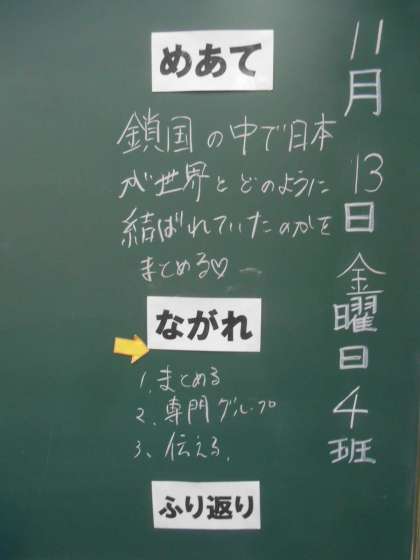 11月13日金曜日4班
めあて
鎖国の中で日本
が世界とどのように
結ばれていたのかを
まとめる♡
ながれ
1.まとめる
2.専門グループ
3.伝える.
ふり返り